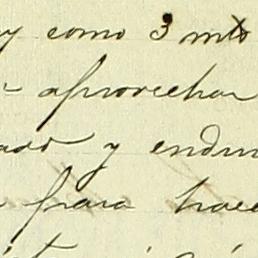 y como 3 mts
aprovechar
y endu
para hace